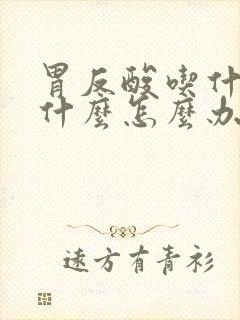 胃反酸喫什
什麼怎麼办
遠方有青衫